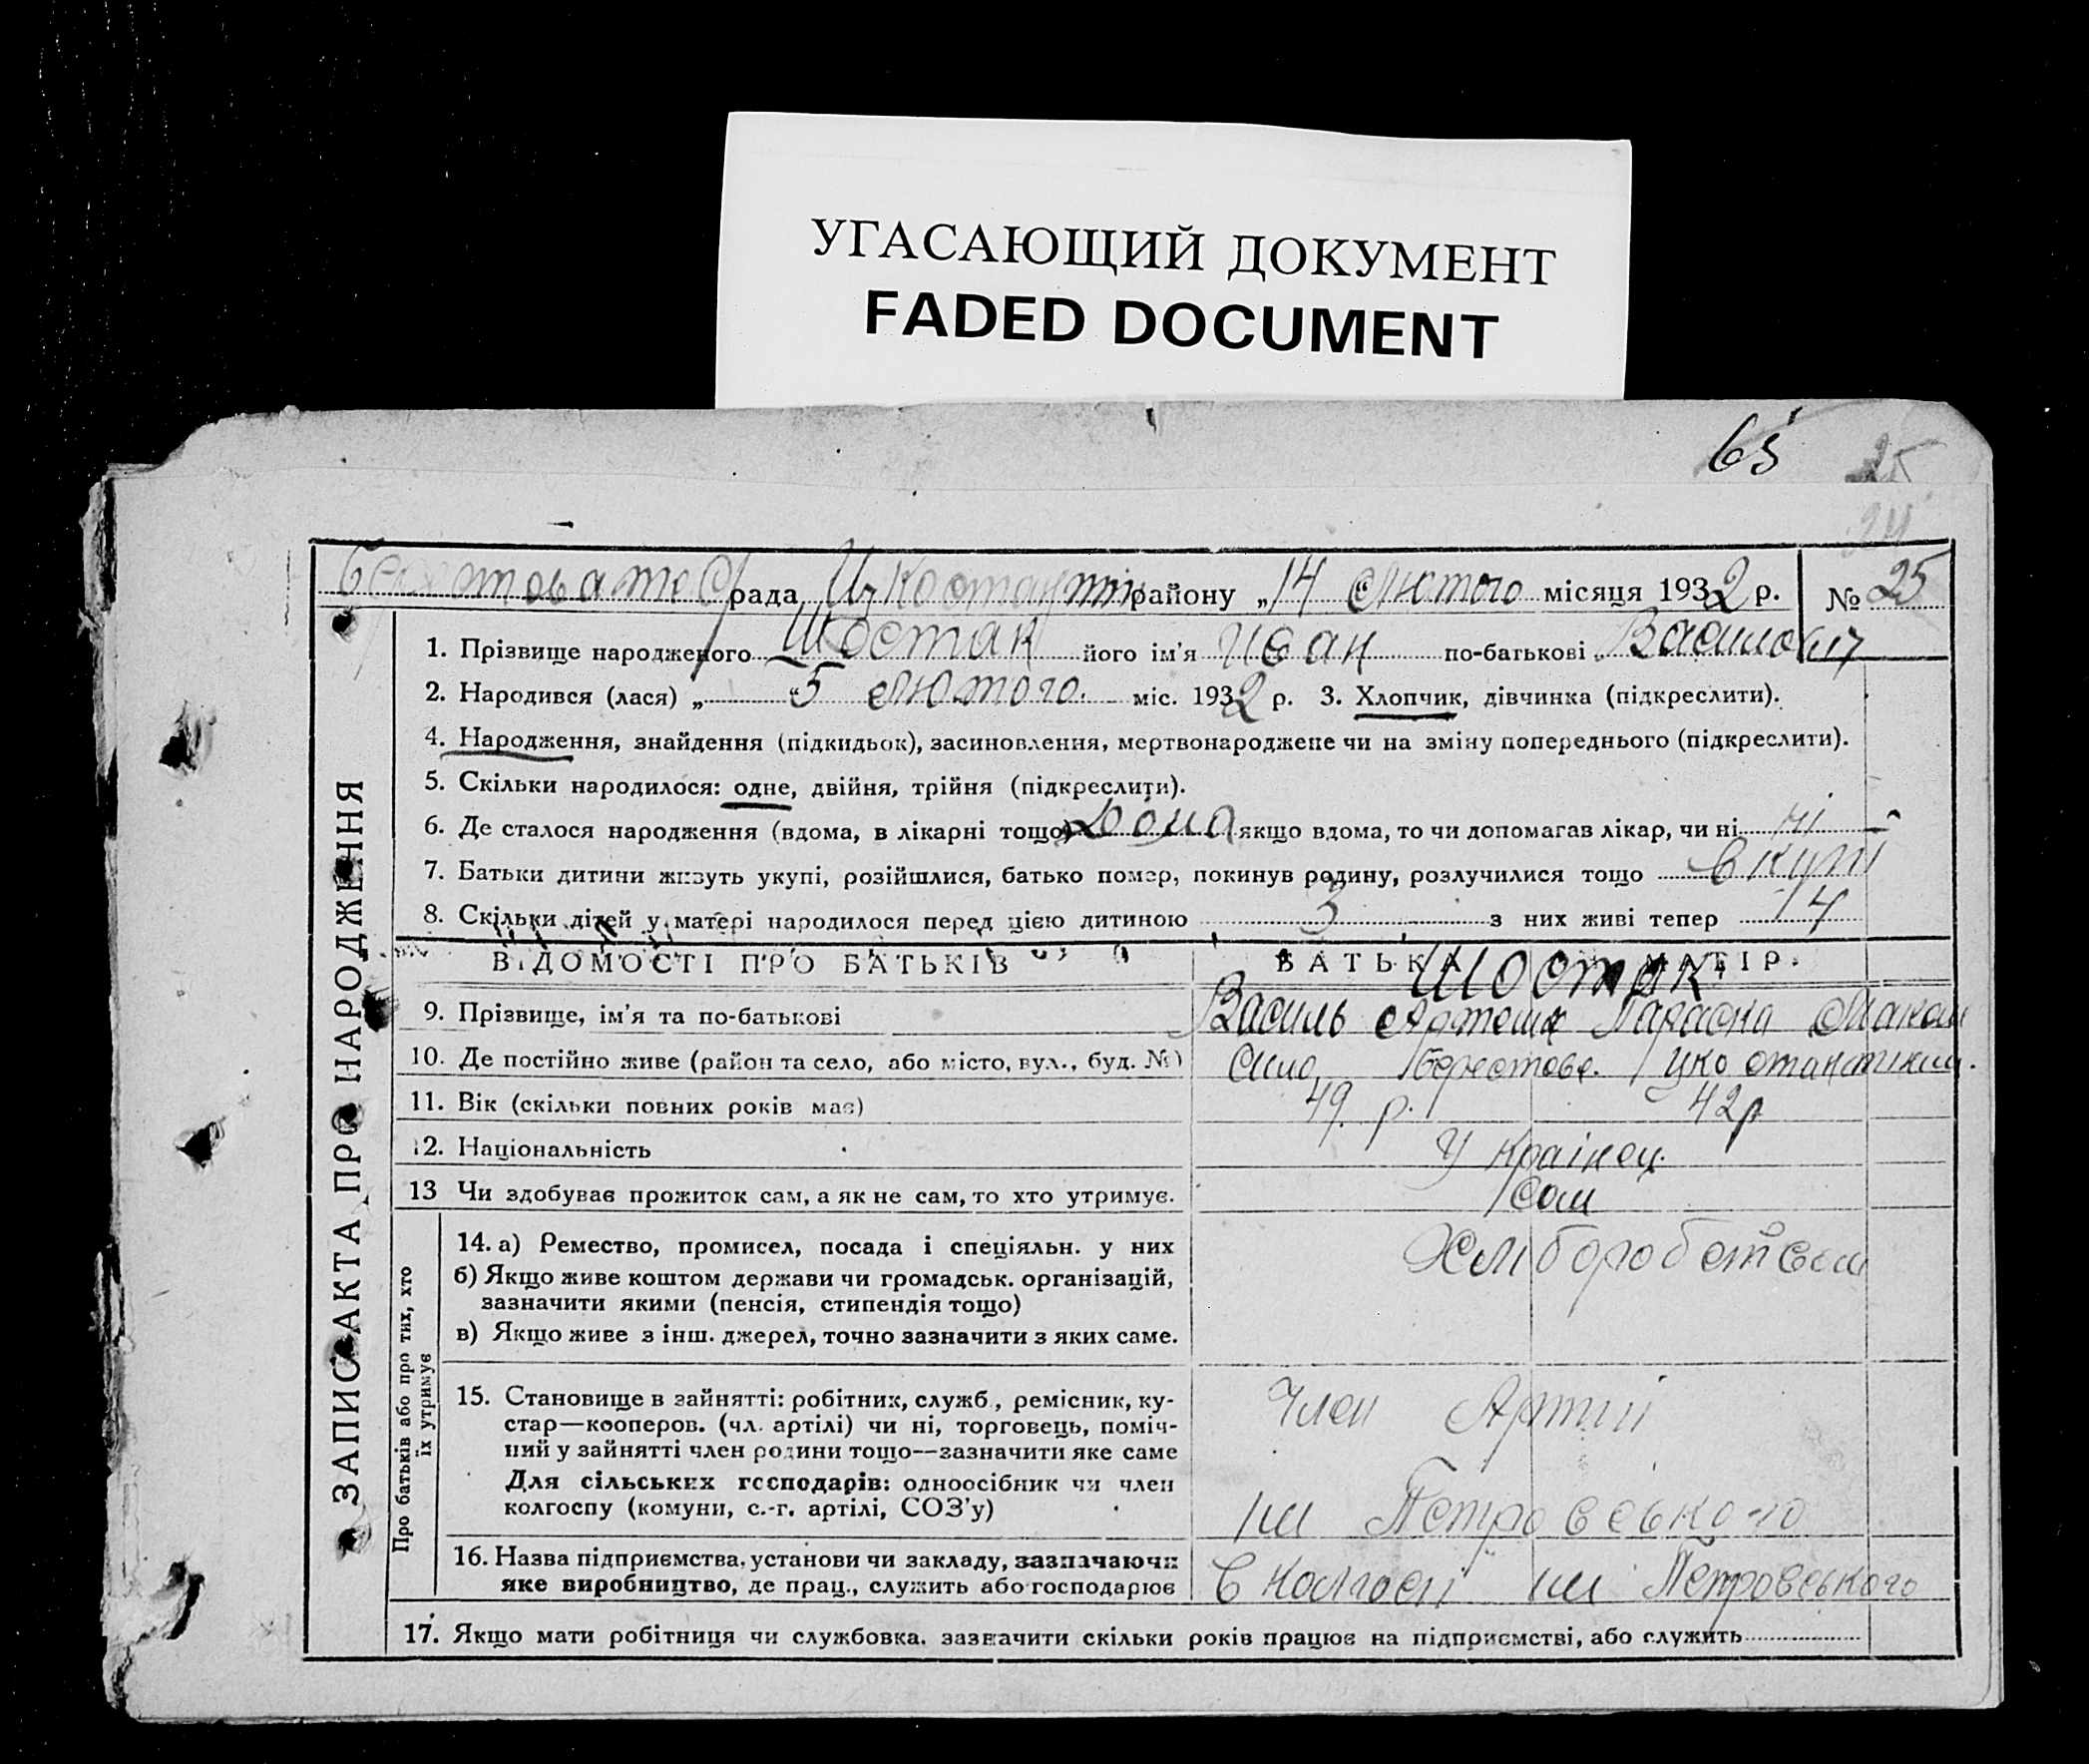 УГАСАЮЩИЙ ДОКУМЕНТ
FADED DOCUMENT
65
25
24
рада району „14 Лютого місяця 1932 р. № 25
1. Прізвище народженого Шостак його ім'я Иван по-батькові „Васильов
2. Народився (лася) „5 Лютого. міс. 1932 р. 3. Хлопчик, дівчинка (підкреслити).
4. Народження, знайдення (підкидьок), засиновлення, мертвонароджене чи на зміну попереднього (підкреслити).
5. Скільки народилося: одне, двійня, трійня (підкреслити).
6. Де сталося народження (вдома, в лікарні тощо) Дома якщо вдома, то чи допомагав лікар, чи ні ні
7. Батьки дитини живуть укупі, розійшлися, батько помер, покинув родину, розлучилися тощо вкупі
8. Скільки дітей у матері народилося перед цією дитиною 3 з них живі тепер 4
ЗАПИС АКТА ПРО НАРОДЖЕННЯ
ВІДОМОСТІ ПРО БАТЬКІВ БАТЬКА МАТІР.
Шостак
9. Прізвище, ім'я та по-батькові Василь Параска
10. Де постійно живе (район та село, або місто, вул., буд. №) Село Берестове.
11. Вік (скільки повних років має) 49. р. 42 р
12. Національність Українец.
13 Чи здобував прожиток сам, а як не сам, то хто утримує. Сам
Про батьків або про тих, хто їх утримує
14. а) Ремество, промисел, посада і спеціяльн. у них Хліборобством
б) Якщо живе коштом держави чи громадськ. організацій,
зазначити якими (пенсія, стипендія тощо)
в) Якщо живе з інш. джерел, точно зазначити з яких саме.
15. Становище в зайнятті: робітник, служб., ремісник, ку-
стар—кооперов. (чл. артілі) чи ні, торговець, поміч-
ний у зайнятті член родини тощо—зазначити яке саме
Для сільських господарів: одноосібник чи член
колгоспу (комуни, с.-г. артілі, СОЗ'у)
Член Артілі
им Петровського
16. Назва підприємства, установи чи закладу, зазначаючи
яке виробництво, де прац., служить або господарює в колгоспі им Петровського
17. Якщо мати робітниця чи службовка, зазначити скільки років працює на підприємстві, або служить